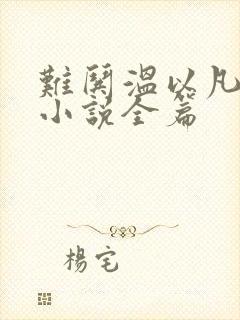 難鬨溫以凡
小説全篇
楊宅